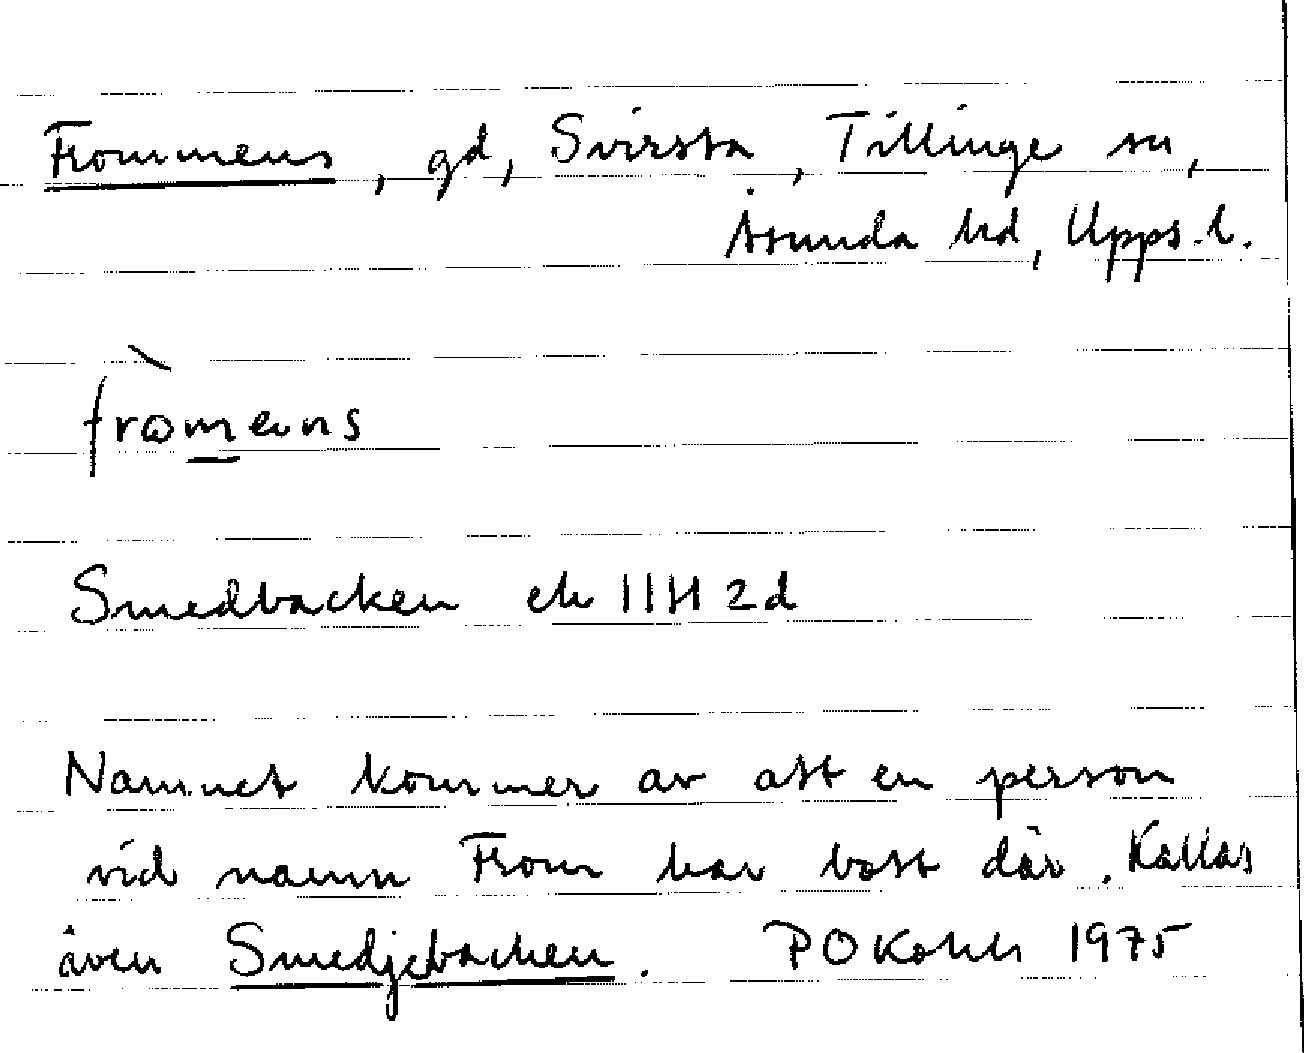 Frommens, gd, Svirsta, Tillinge sn,
Åsunda hd, Upps. l.
fròmens
Smedbacken ek 11H 2d
Namnet kommer av att en person
vid namn From har bott där. Kallas
även Smedjebacken. P O Kohls 1975